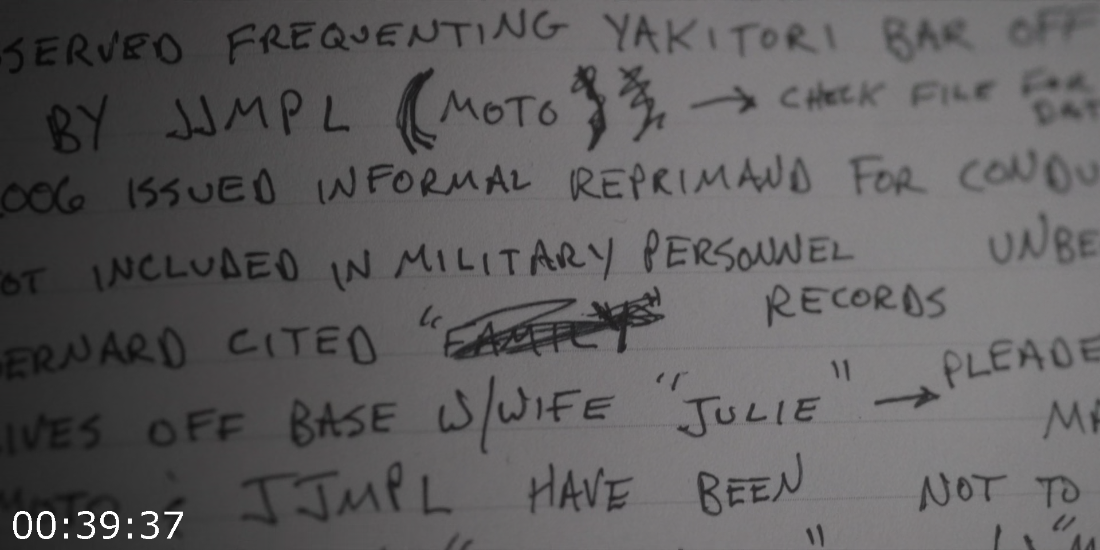 SERVED FREQUENTING YAKITORI BAR OFF
BY JJMPL (MOTO) → CHECK FILE FOR
DAT
006 ISSUED INFORMAL REPRIMAND FOR CONDU
OT INCLUDED IN MILITARY PERSONNEL UNBE
RECORDS
ERNARD CITED "FAMILY"
PLEADE
IVES OFF BASE W/WIFE "JULIE" →
MA
MOTO & JJMPL HAVE BEEN NOT TO
00:39:37